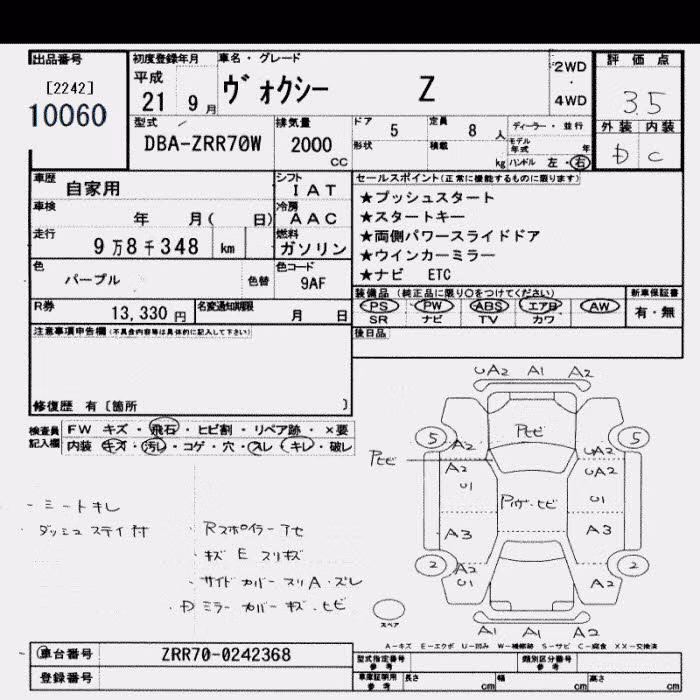 出品番号 初度登録年月 車名・グレード 2WD ・ 4WD 評価点
[2242]
10060
平成 21 9月 ヴォクシー Z 3.5
型式 排気量 ドア 5 定員 8人 ディーラー・並行 外装 内装
DBA-ZRR70W 2000 CC 形状 積載 kg モデル年式 年 ハンドル 左・右 D C
車歴 自家用 シフト IAT セールスポイント(正常に機能するものに限ります)
車検 年 月( 日) 冷房 AAC
走行 9万8千348 km 燃料 ガソリン
★プッシュスタート
★スタートキー
★両側パワースライドドア
★ウインカーミラー
★ナビ ETC
色 パープル 色替 色コード 9AF
R券 13,330円 名変通知期限 月 日
装備品(純正品に限り○をつけてください) 新車保証書
PS PW ABS エアB AW 有・無
SR ナビ TV カワ
注意事項申告欄(不具合内容等は具体的に記入して下さい) 後日品
修復歴 有[箇所 ]
検査員記入欄 FW キズ・飛石・ヒビ割・リペア跡・×要
内装 キズ・汚レ・コゲ・穴・スレ・キレ・破レ
UA2 A1 A2
5 A2 Pヒビ 5
Pヒビ A2 UA2
A2 UA2
U1 Pヒビ U1
A3 A3
2 A2 2
U1 A2
A1 A1 A2
スペア
・シートキレ
・ダッシュ ステイ付
・Rスポイラー アセ
・キズ E スリキズ
・サイド カバー スリA・ズレ
・D ミラー カバー キズ・ヒビ
A－キズ E－エクボ U－凹み W－補修跡 S－サビ C－腐食 XX－交換済
車台番号 ZRR70-0242368 型式指定番号 参考 類別区分番号 参考
登録番号 車庫証明用 参考 長さ cm 幅 cm 高さ cm